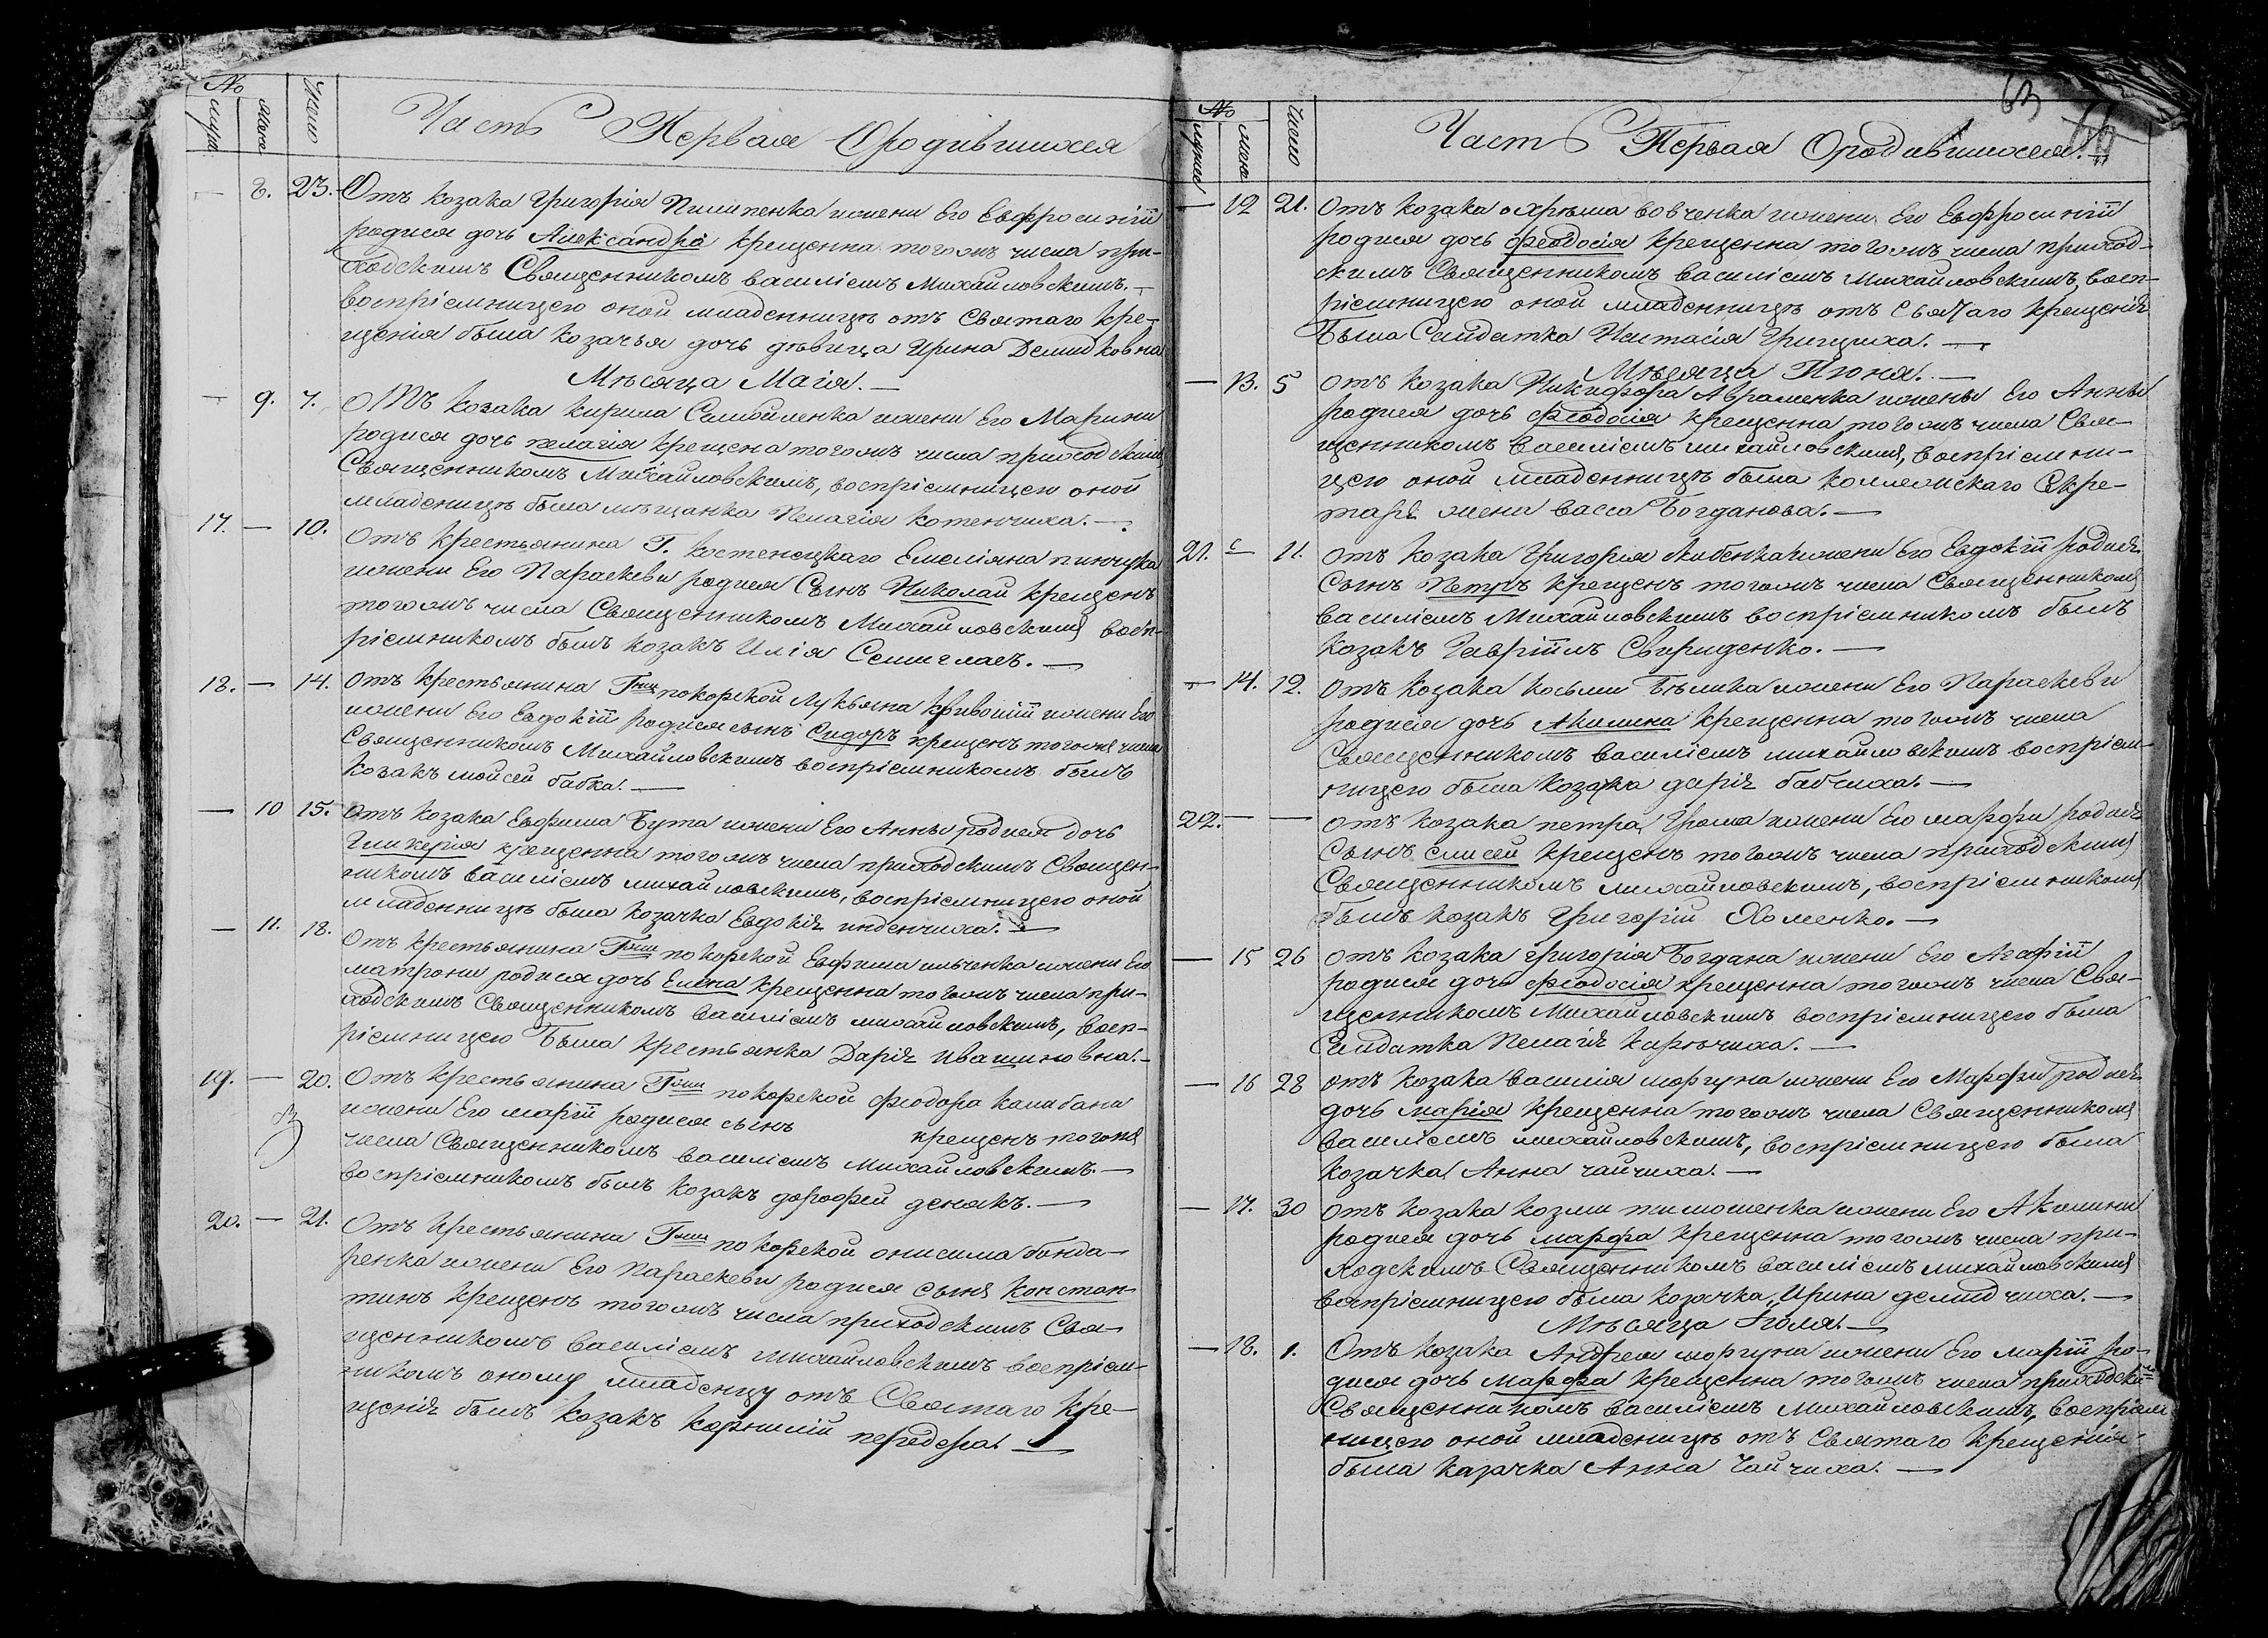 № Число
мужс. женс.
Часть Первая О родившихся
— 8. 23. Отъ козака Григорія Пилипенка и жены Его Евфросиніи
родися дочь Александра крещенна тогожъ числа при-
ходскимъ Священникомъ василіемъ Михайловскимъ. —
воспріемницею оной младенницѣ отъ Святаго Кре-
щенія была козачья дочь дѣвица Ирина Демидковна
Мѣсяца Маія. —
— 9. 7. Отъ козака кирила Самойленка и жены Его Марини
родися дочь пелагія крещена тогожъ числа приходскимъ
Священникомъ Михайловскимъ, воспріемницею оной
младеницѣ была мѣщанка Пелагія Котенчиха. —
17. — 10. Отъ крестьянина Г. Костенецкаго Емеліяна пинчука
и жены Его Параскевы родися Сынъ Николай крещенъ
тогожъ числа Священникомъ Михайловскимъ восп-
ріемникомъ былъ козакъ Илія Семиглаг. —
18. — 14. Отъ крестьянина Гжи покорской Лукьяна кривошіи и жены Его
и жены Его Евдокіи родися сынъ Сидоръ крещенъ тогожъ числа
Священникомъ Михайловскимъ воспріемникомъ былъ
козакъ мойсей бабка. —
— 10 15. Отъ козака Евфима Бута и жены Его Анны родися дочь
Гликерія крещенна тогожъ числа приходскимъ Священ-
никомъ василіемъ михайловскимъ, воспріемницею оной
младенницѣ была козачка Евдокія инденчиха. —
— 11. 18. Отъ крестьянина Гжи покорской Евфима ильченка и жены Его
матроны родися дочь Елена крещенна тогожъ числа при-
ходскимъ Священникомъ василіемъ михайловскимъ, восп-
ріемницею Была крестьянка Дарія ивашиновна. —
19. — 20. Отъ крестьянина Гжи покорской феодора калибани
и жены Его маріи родися сынъ крещенъ тогожъ
числа Священникомъ василіемъ михайловскимъ. —
воспріемникомъ былъ козакъ дорофей денякъ. —
20. — 21. Отъ крестьянина Гжи покорской онисима бонда-
ренка и жены Его Параскевы родися сынъ констан-
тинъ крещенъ тогожъ числа приходскимъ Свя-
щенникомъ василіемъ михайловскимъ воспріем-
никомъ оному младенцу отъ Святаго Кре-
щенія былъ козакъ корнилій передера. —
63
№ Число
мужс. женс.
Часть Первая О родившихся.
— 12 21. Отъ козака охрѣма вовченка и жены Его Евфросиніи
родися дочь феодосія крещенна тогожъ числа приход-
скимъ Священникомъ василіемъ Михайловскимъ, восп-
ріемницею оной младенницѣ отъ Святаго крещенія
Была Солдатка Настасія Грицчиха. —
Мѣсяца Іюня. —
— 13. 5 отъ козака Никифора Авраменка и жены Его Анны
родися дочь феодосія крещенна тогожъ числа Свя-
щенникомъ василіемъ михайловскимъ, воспріемни-
цею оной младенницѣ была коллежскаго Секре-
таря жена васса Богданова. —
21. — 11. отъ козака Григорія скибенка и жены Его Евдокіи родися
Сынъ Петръ крещенъ тогожъ числа Священникомъ
василіемъ Михайловскимъ воспріемникомъ былъ
козакъ Гавріилъ Свириденко. —
— 14. 12. отъ козака косьмы Бѣлика и жены Его Параскевы
родися дочь Акилина крещенна тогожъ числа
Священникомъ василіемъ михайловскимъ воспріем-
ницею была козачка дарія бабчиха. —
22. — — отъ козака петра Грома и жены Его марфы родися
Сынъ елисей крещенъ тогожъ числа приходскимъ
Священникомъ михайловскимъ, воспріемникомъ
былъ козакъ Григорій Хоменко. —
— 15 26 отъ козака григорія Богдана и жены Его Агафіи
родися дочь феодосія крещенна тогожъ числа Свя-
щенникомъ Михайловскимъ воспріемницею была
Солдатка Пелагія Кирѣчиха. —
— 16 28 отъ козака василія моргуна и жены Его Марфы родися
дочь марія крещенна тогожъ числа Священникомъ
василіемъ михайловскимъ, воспріемницею была
козачка Анна чайчиха. —
— 17. 30 отъ козака козми тимошенка и жены Его Акилины
родися дочь марфа крещенна тогожъ числа при-
ходскимъ Священникомъ василіемъ михайловскимъ
воспріемницею была козачка Ирина демидчиха. —
Мѣсяца Іюля. —
— 18. 1. Отъ козака Андрея моргуна и жены Его маріи ро-
дися дочь марфа крещенна тогожъ числа приходски-
Священникомъ василіемъ Михайловскимъ, воспріем
ницею оной младенницѣ отъ Святаго Крещенія
была козачка Анна Чайчиха. —